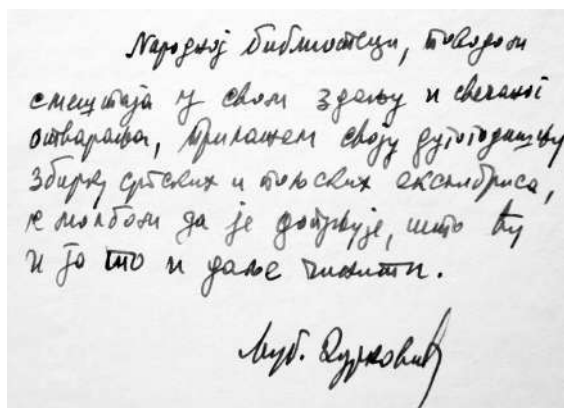 Народној библиотеци, поводом
смештаја у свом здању и свечаног
отварања, прилажем своју дугогодишњу
збирку српских и пољских екслибриса,
с молбом да је допуњује, што ћу
и ја то и даље чинити.
Љуб.